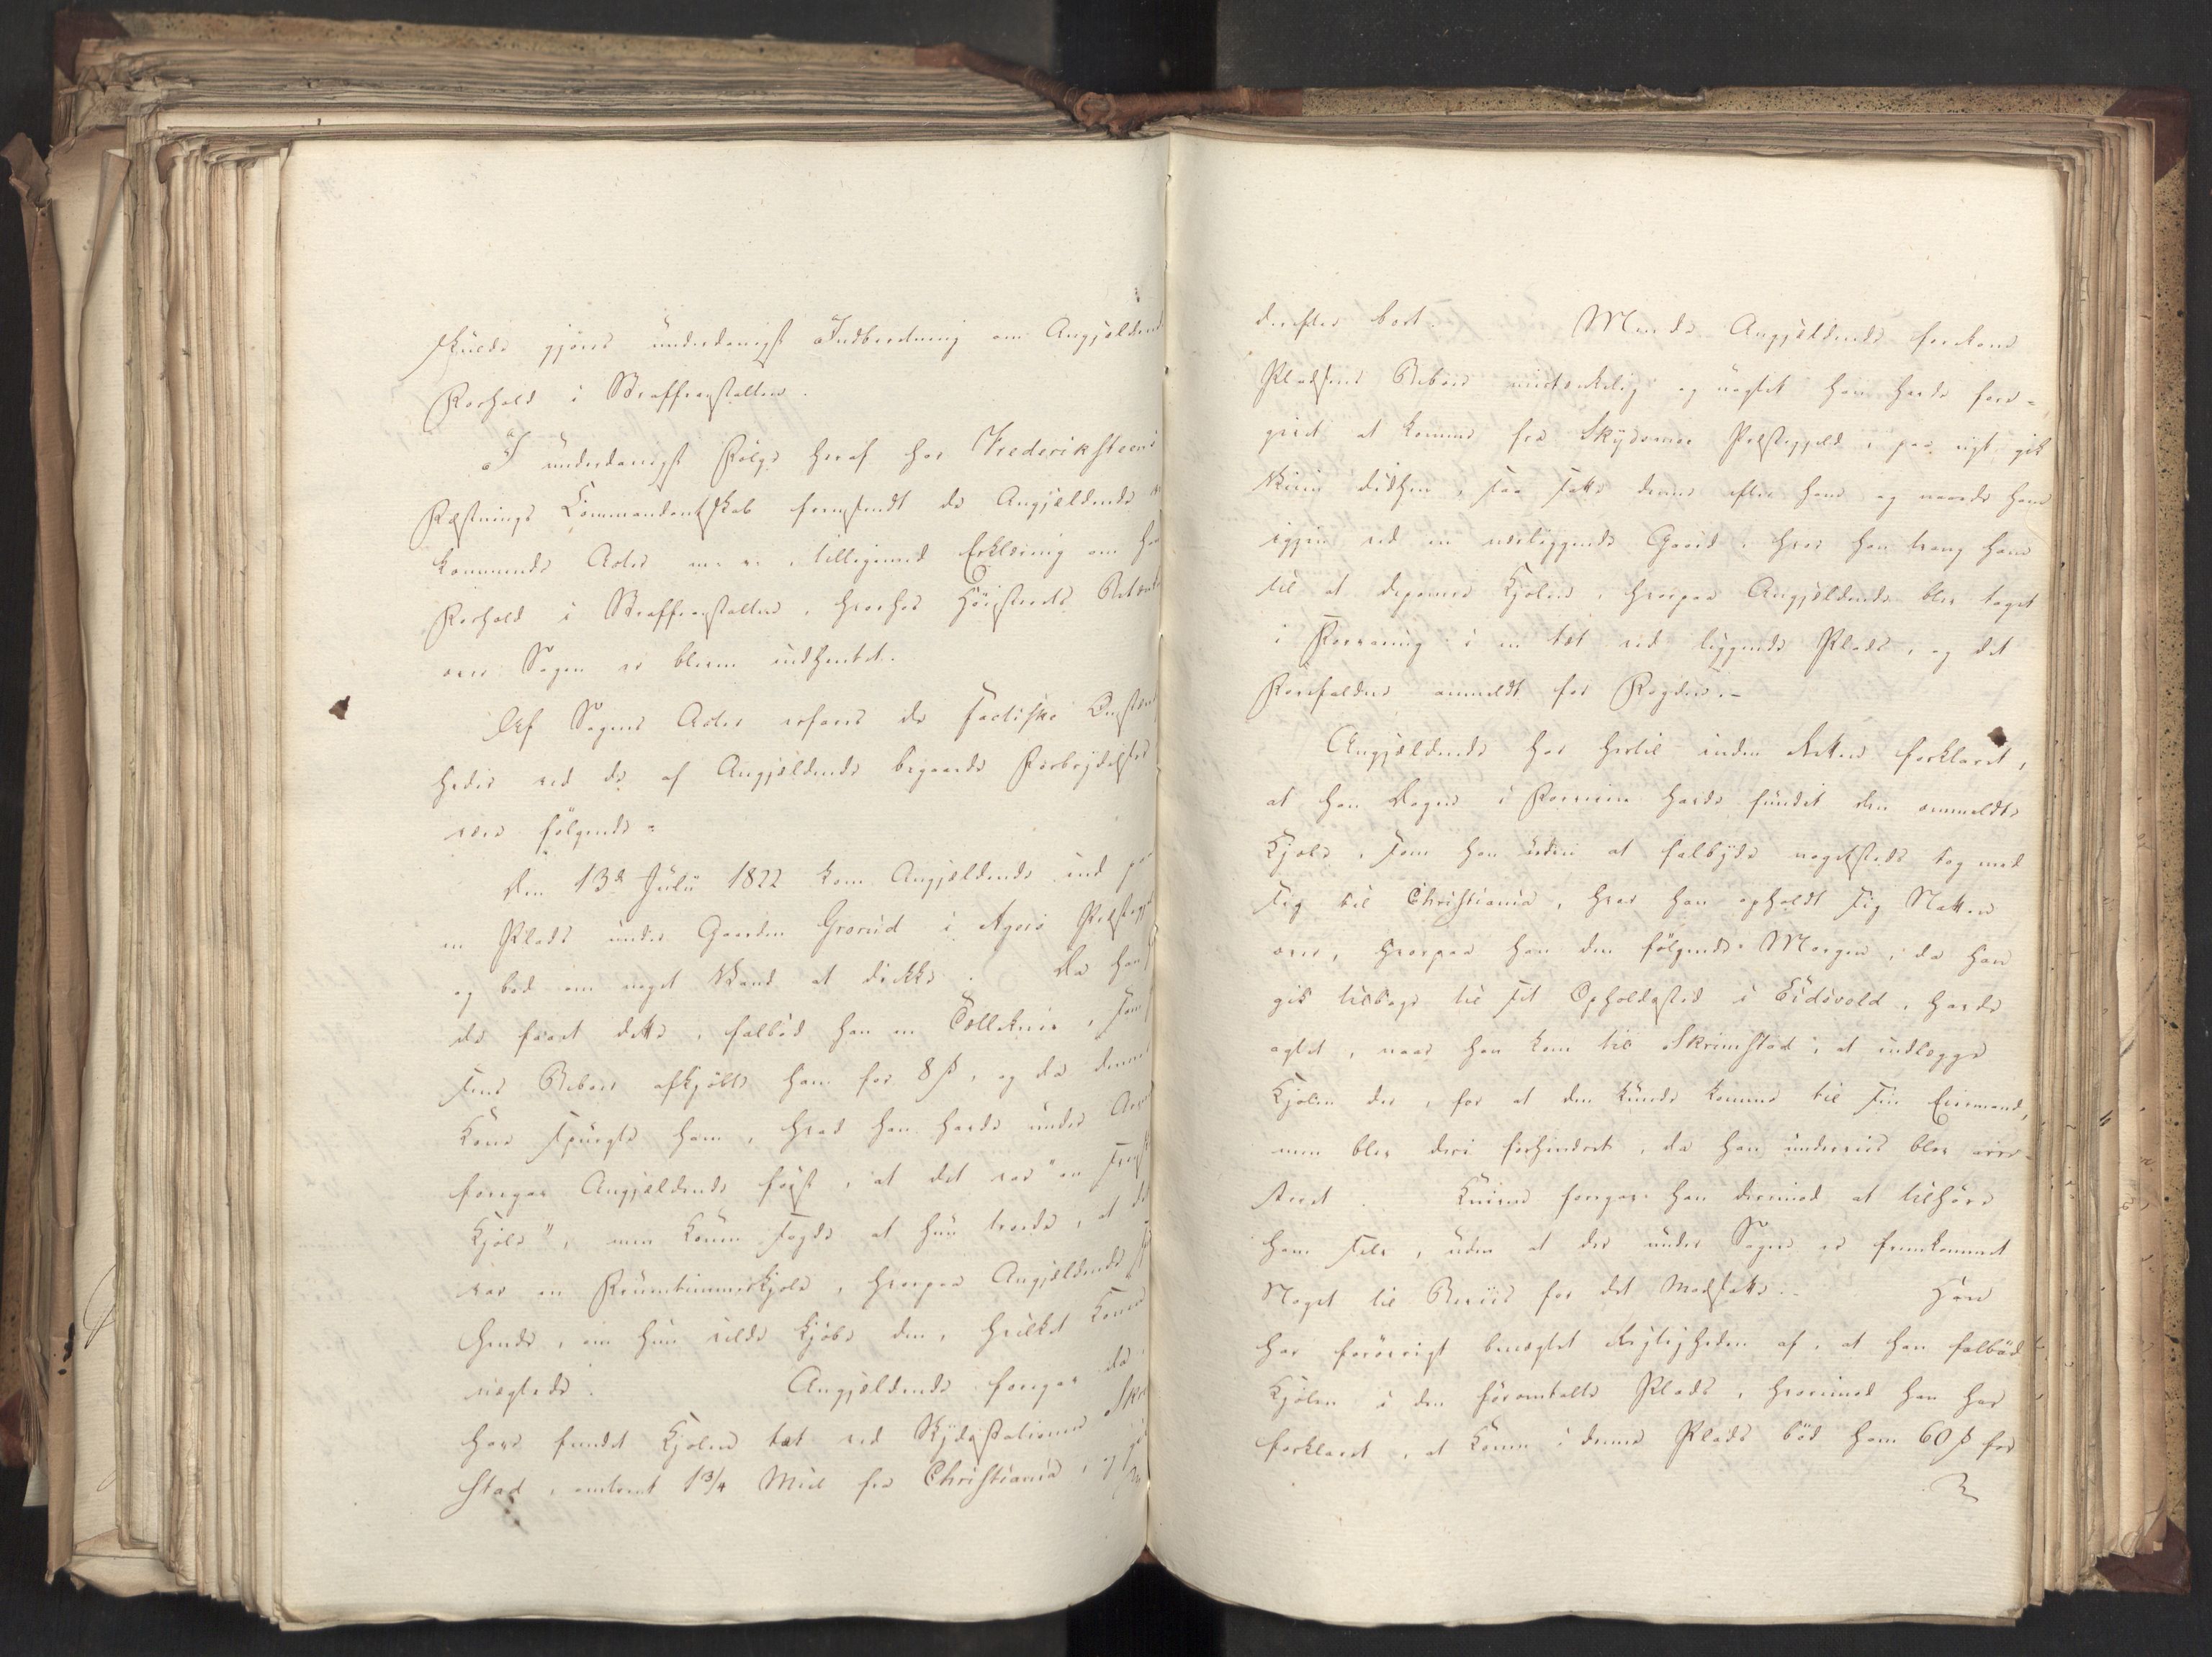 skulde gjøres underdanigst Indberetning om Angjeldende
Forhold i Straffeanstalten.
I underdanigst Følge heraf har Frederikssteens
Fæstnings Commandantskab fremsendt de Angjeldende
kommende Acter m. v. tilligemed Erklæring om
Forhold i Straffeanstalten, hvorhos Höiesterets
over Sagen er bleven indhentet.
Af Sagens Acter erfares de factiske
heder ved de af Angjeldende begaaede Forbrydelser
være følgende:
Den 13de Julii 1822 kom Angjeldende ind
en Plads under Gaarden Grorud i Agers
og bad om noget Vand at drikke. Da
de faaet dette, falbød han en Tollekniv,
sens Beboer afkjøbte ham for 8 ß, og da
Kone spurgte ham, hvad han havde under
foregav Angjeldende først, at det var "en
Kjole", men Konen sagde at hun troede, at
var en Fruentimmerkjole, hvorpaa Angjeldende
hende, om hun vilde kjøbe den, hvilket Konen
nægtede. Angjeldende foregav da
have fundet Kjolen tæt ved Skydsstationen
stad, omtrent 1¾ Miil fra Christiania,
derefter bort. Men da Angjeldende forekom
Pladsens Beboer mistænkelig og uagtet han havde fore=
givet at komme fra Skydsmoe Præstegjeld, paa nyt gik
Veien didhen, saa satte denne efter ham og naaede ham
igjen ved en nærliggende Gaard, hvor han tvang ham
til at deponere Kjolen, hvorpaa Angjeldende blev taget
i Forvaring i en tæt ved liggende Plads, og det
Forefaldne anmeldt for Fogden.-
Angjeldende har hertil inden Retten forklaret,
at han Dagen i Forveien havde fundet den ommeldte
Kjole, som han uden at falbyde nogetsteds tog med
sig til Christiania, hvor han opholdt sig Natten
over, hvorpaa han den følgende Morgen, da han
gik tilbage til sit Opholdssted i Eidsvold, havde
agtet, naar han kom til Skrimstad, at indlægge
Kjolen der, for at den kunde komme til sin Eiermand,
men blev deri forhindret, da han underveis blev arre=
steret. Kniven foregav han derimod at tilhøre
ham selv, uden at der under Sagen er fremkommet
Noget til Beviis for det Modsatte.- Han
har forøvrigt benægtet Rigtigheden af, at han falbød
Kjolen i den föromtalte Plads, hvorimod han har
forklaret, at Konen i denne Plads bød ham 60 ß for